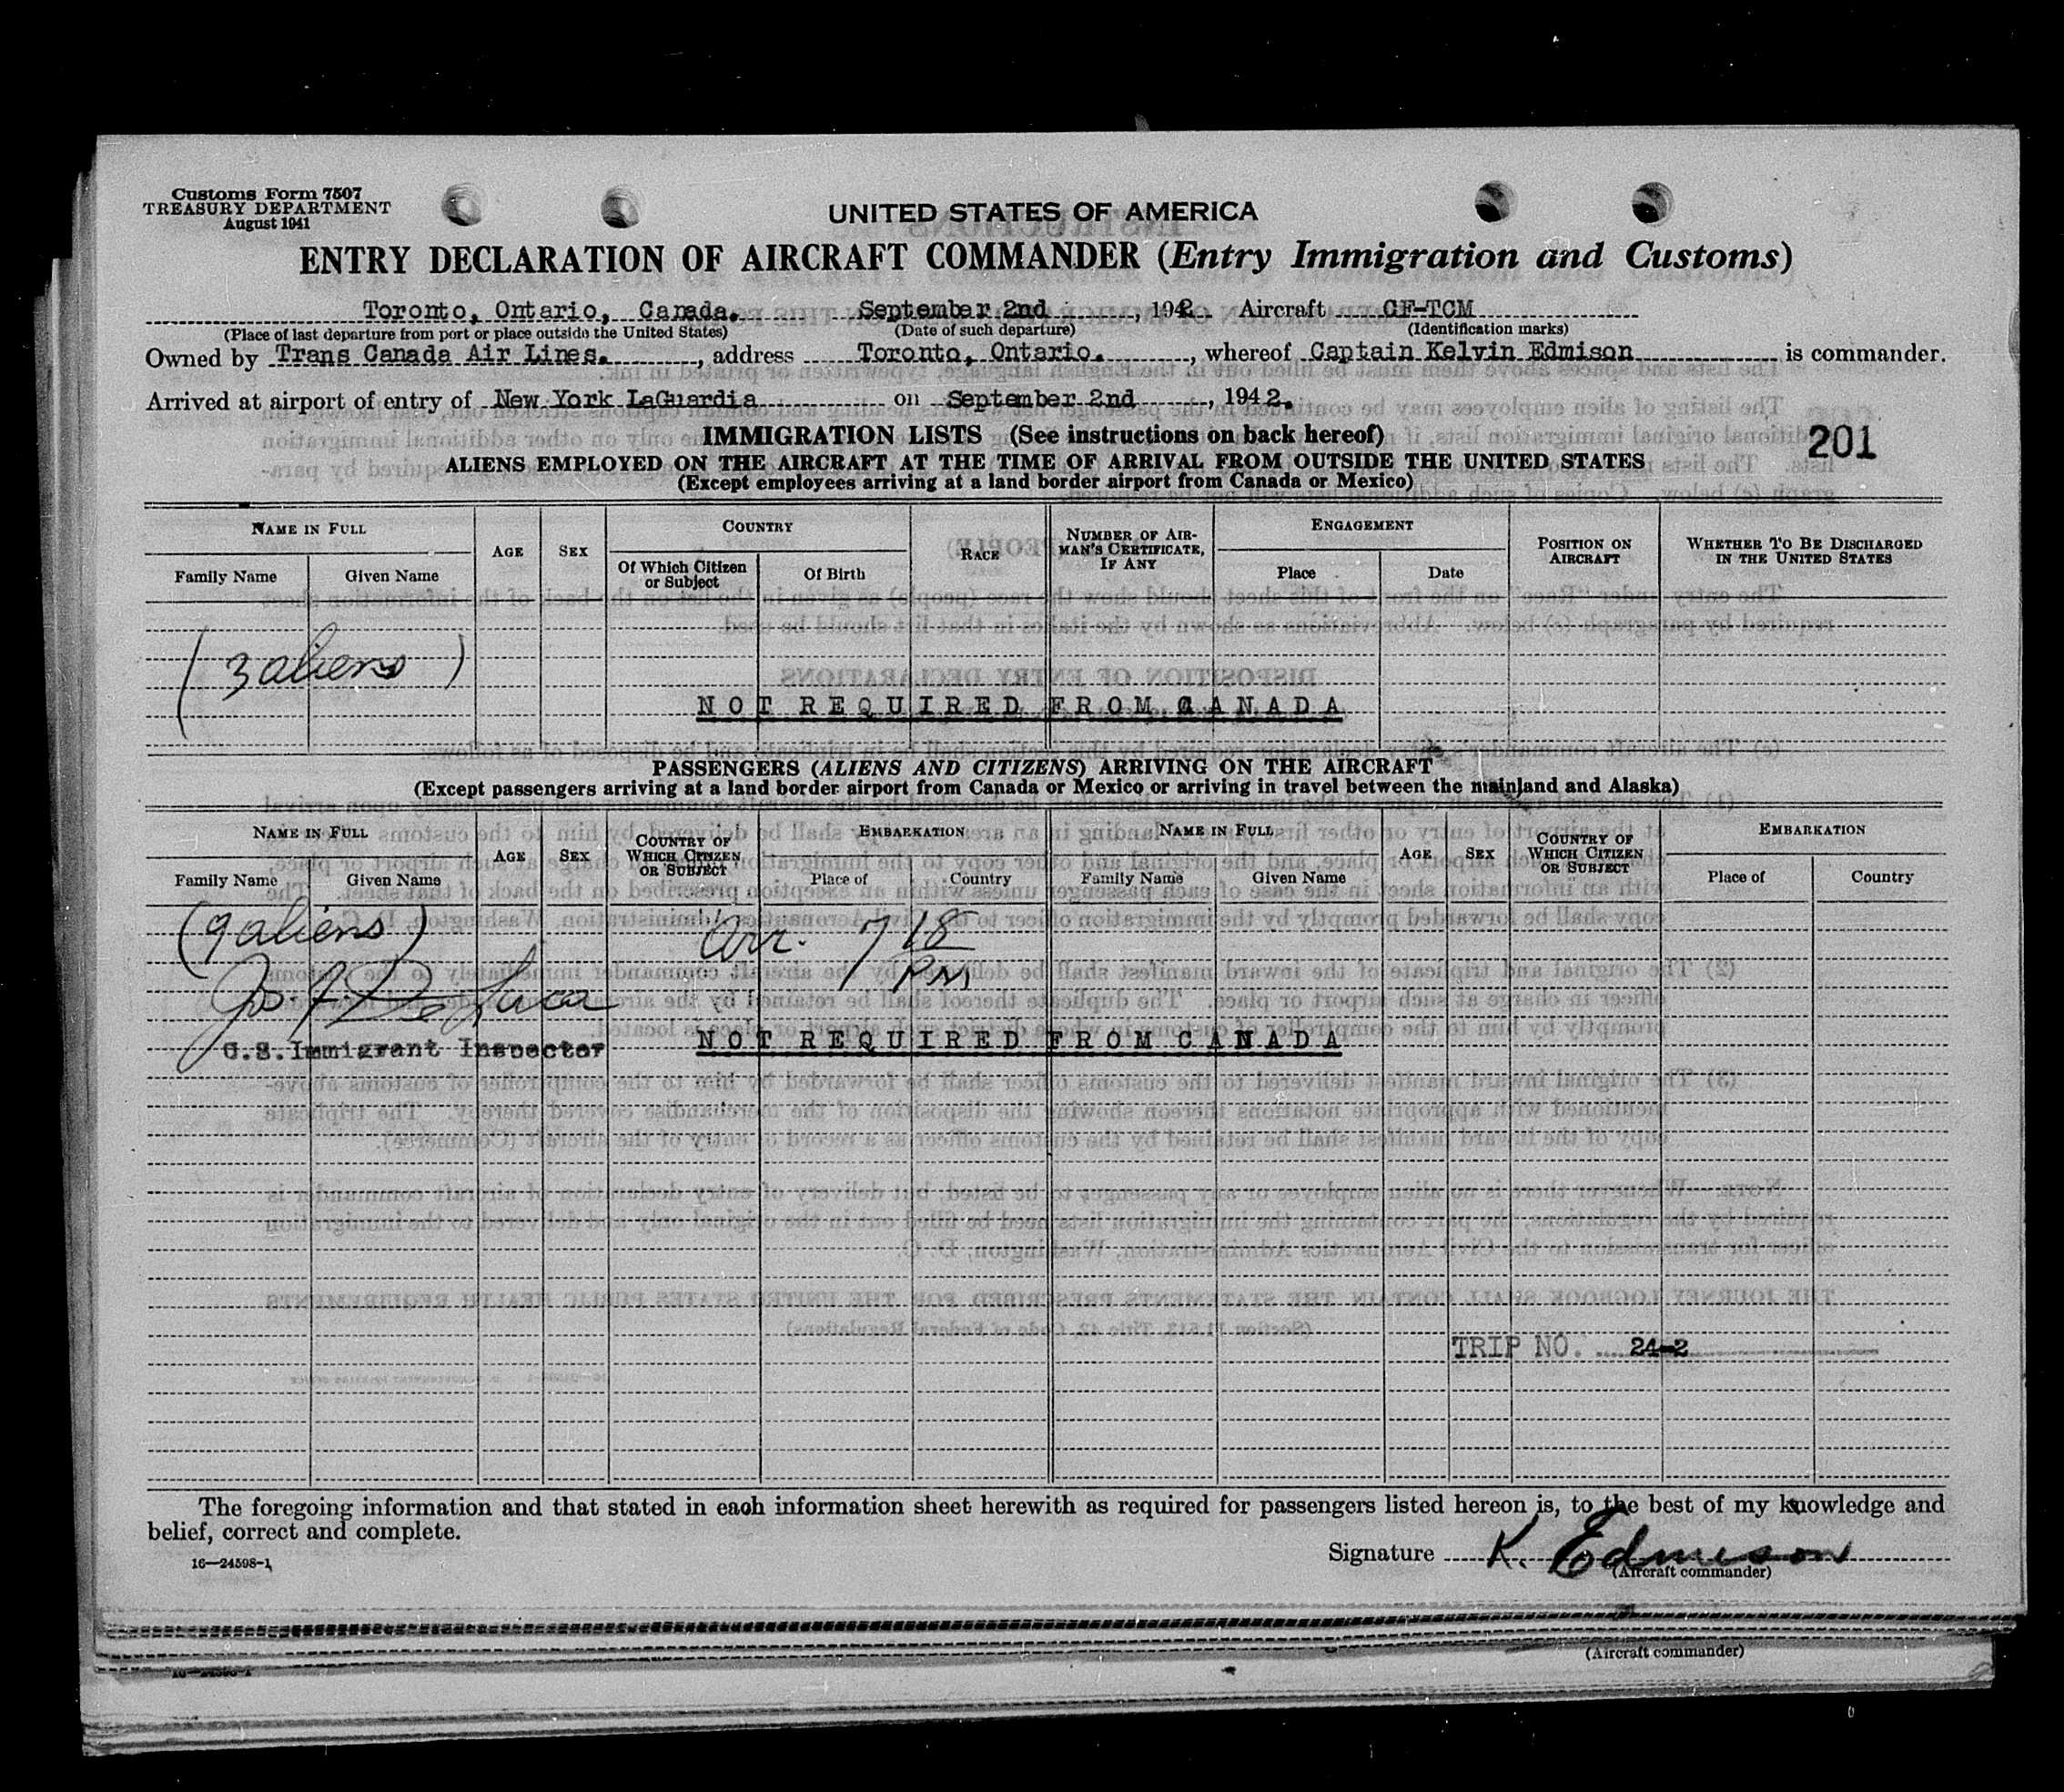 Customs Form 7507
TREASURY DEPARTMENT
August 1941
UNITED STATES OF AMERICA
ENTRY DECLARATION OF AIRCRAFT COMMANDER (Entry Immigration and Customs)
Toronto, Ontario, Canada. September 2nd, 1942. Aircraft CF-TCM
(Place of last departure from port or place outside the United States) (Date of such departure) (Identification marks)
Owned by Trans Canada Air Lines., address Toronto, Ontario., whereof Captain Kelvin Edmison is commander.
Arrived at airport of entry of New York LaGuardia on September 2nd, 1942.
IMMIGRATION LISTS (See instructions on back hereof)
201
ALIENS EMPLOYED ON THE AIRCRAFT AT THE TIME OF ARRIVAL FROM OUTSIDE THE UNITED STATES
(Except employees arriving at a land border airport from Canada or Mexico)
NAME IN FULL AGE SEX COUNTRY RACE NUMBER OF AIRMAN'S CERTIFICATE, IF ANY ENGAGEMENT POSITION ON AIRCRAFT WHETHER TO BE DISCHARGED IN THE UNITED STATES
Family Name Given Name Of Which Citizen or Subject Of Birth Place Date
(3 aliens)
NOT REQUIRED FROM CANADA
PASSENGERS (ALIENS AND CITIZENS) ARRIVING ON THE AIRCRAFT
(Except passengers arriving at a land border airport from Canada or Mexico or arriving in travel between the mainland and Alaska)
NAME IN FULL AGE SEX COUNTRY OF WHICH CITIZEN OR SUBJECT EMBARKATION NAME IN FULL AGE SEX COUNTRY OF WHICH CITIZEN OR SUBJECT EMBARKATION
Family Name Given Name Place of Country Family Name Given Name Place of Country
(9 aliens) Arr. 7 18 PM
Jos. F. De Luca
U.S. Immigrant Inspector
NOT REQUIRED FROM CANADA
TRIP NO. 24-2
The foregoing information and that stated in each information sheet herewith as required for passengers listed hereon is, to the best of my knowledge and
belief, correct and complete.
16—24598-1
Signature K. Edmison
(Aircraft commander)
(Aircraft commander)